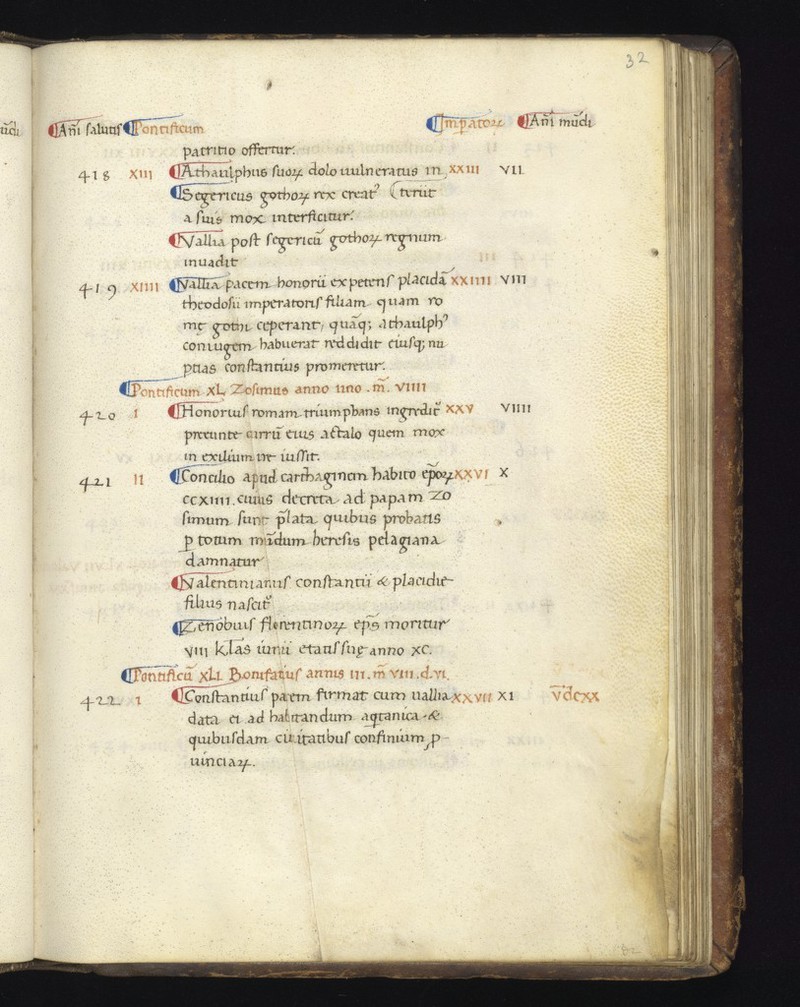 32
Añi salutis Pontificum Imꝑatoꝝ Añi mũdi
patritio offertur.
418 XIII Athaulphus suoꝝ dolo uulneratus in XXIII VII
Segericus gothoꝝ rex creat᷒ (teriit
a suis mox interficitur.
Vallia post segericũ gothoꝝ regnum
inuadit
419 XIIII Vallia pacem honorii expetens placidã XXIIII VIII
theodosii imperatoris filiam quam ro
mę gothi ceperant, quãq; athaulph᷒
coniugem habuerat reddidit eiusq; nu
ptias constantius promeretur.
Pontificum XL Zosimus anno uno .m̃. VIIII
420 I Honorius romam triumphans ingredit᷒ XXV VIIII
preeunte currũ eius actalo quem mox
in exilium ire iussit.
421 II Concilio apud carthaginem habito ep̃oꝝ XXVI X
CCXIIII. cuius decreta ad papam Zo
simum sunt p̃lata quibus probatis
ꝑ totum mũdum heresis pelagiana
damnatur
Valentinianus constantii & placidie
filius nascit᷒
Zenobius florentinoꝝ ep̃s moritur
VIII kl̃as iunii etatis suę anno XC.
Pontificũ XLI Bonifatius annis III. m̃ VIII. d. VI.
422 I Constantius pacem firmat cum uallia XXVII XI V̅DCXX
data ei ad habitandum aq̃tanica &
quibusdam ciuitatibus confinium ꝓ
uinciaꝝ.